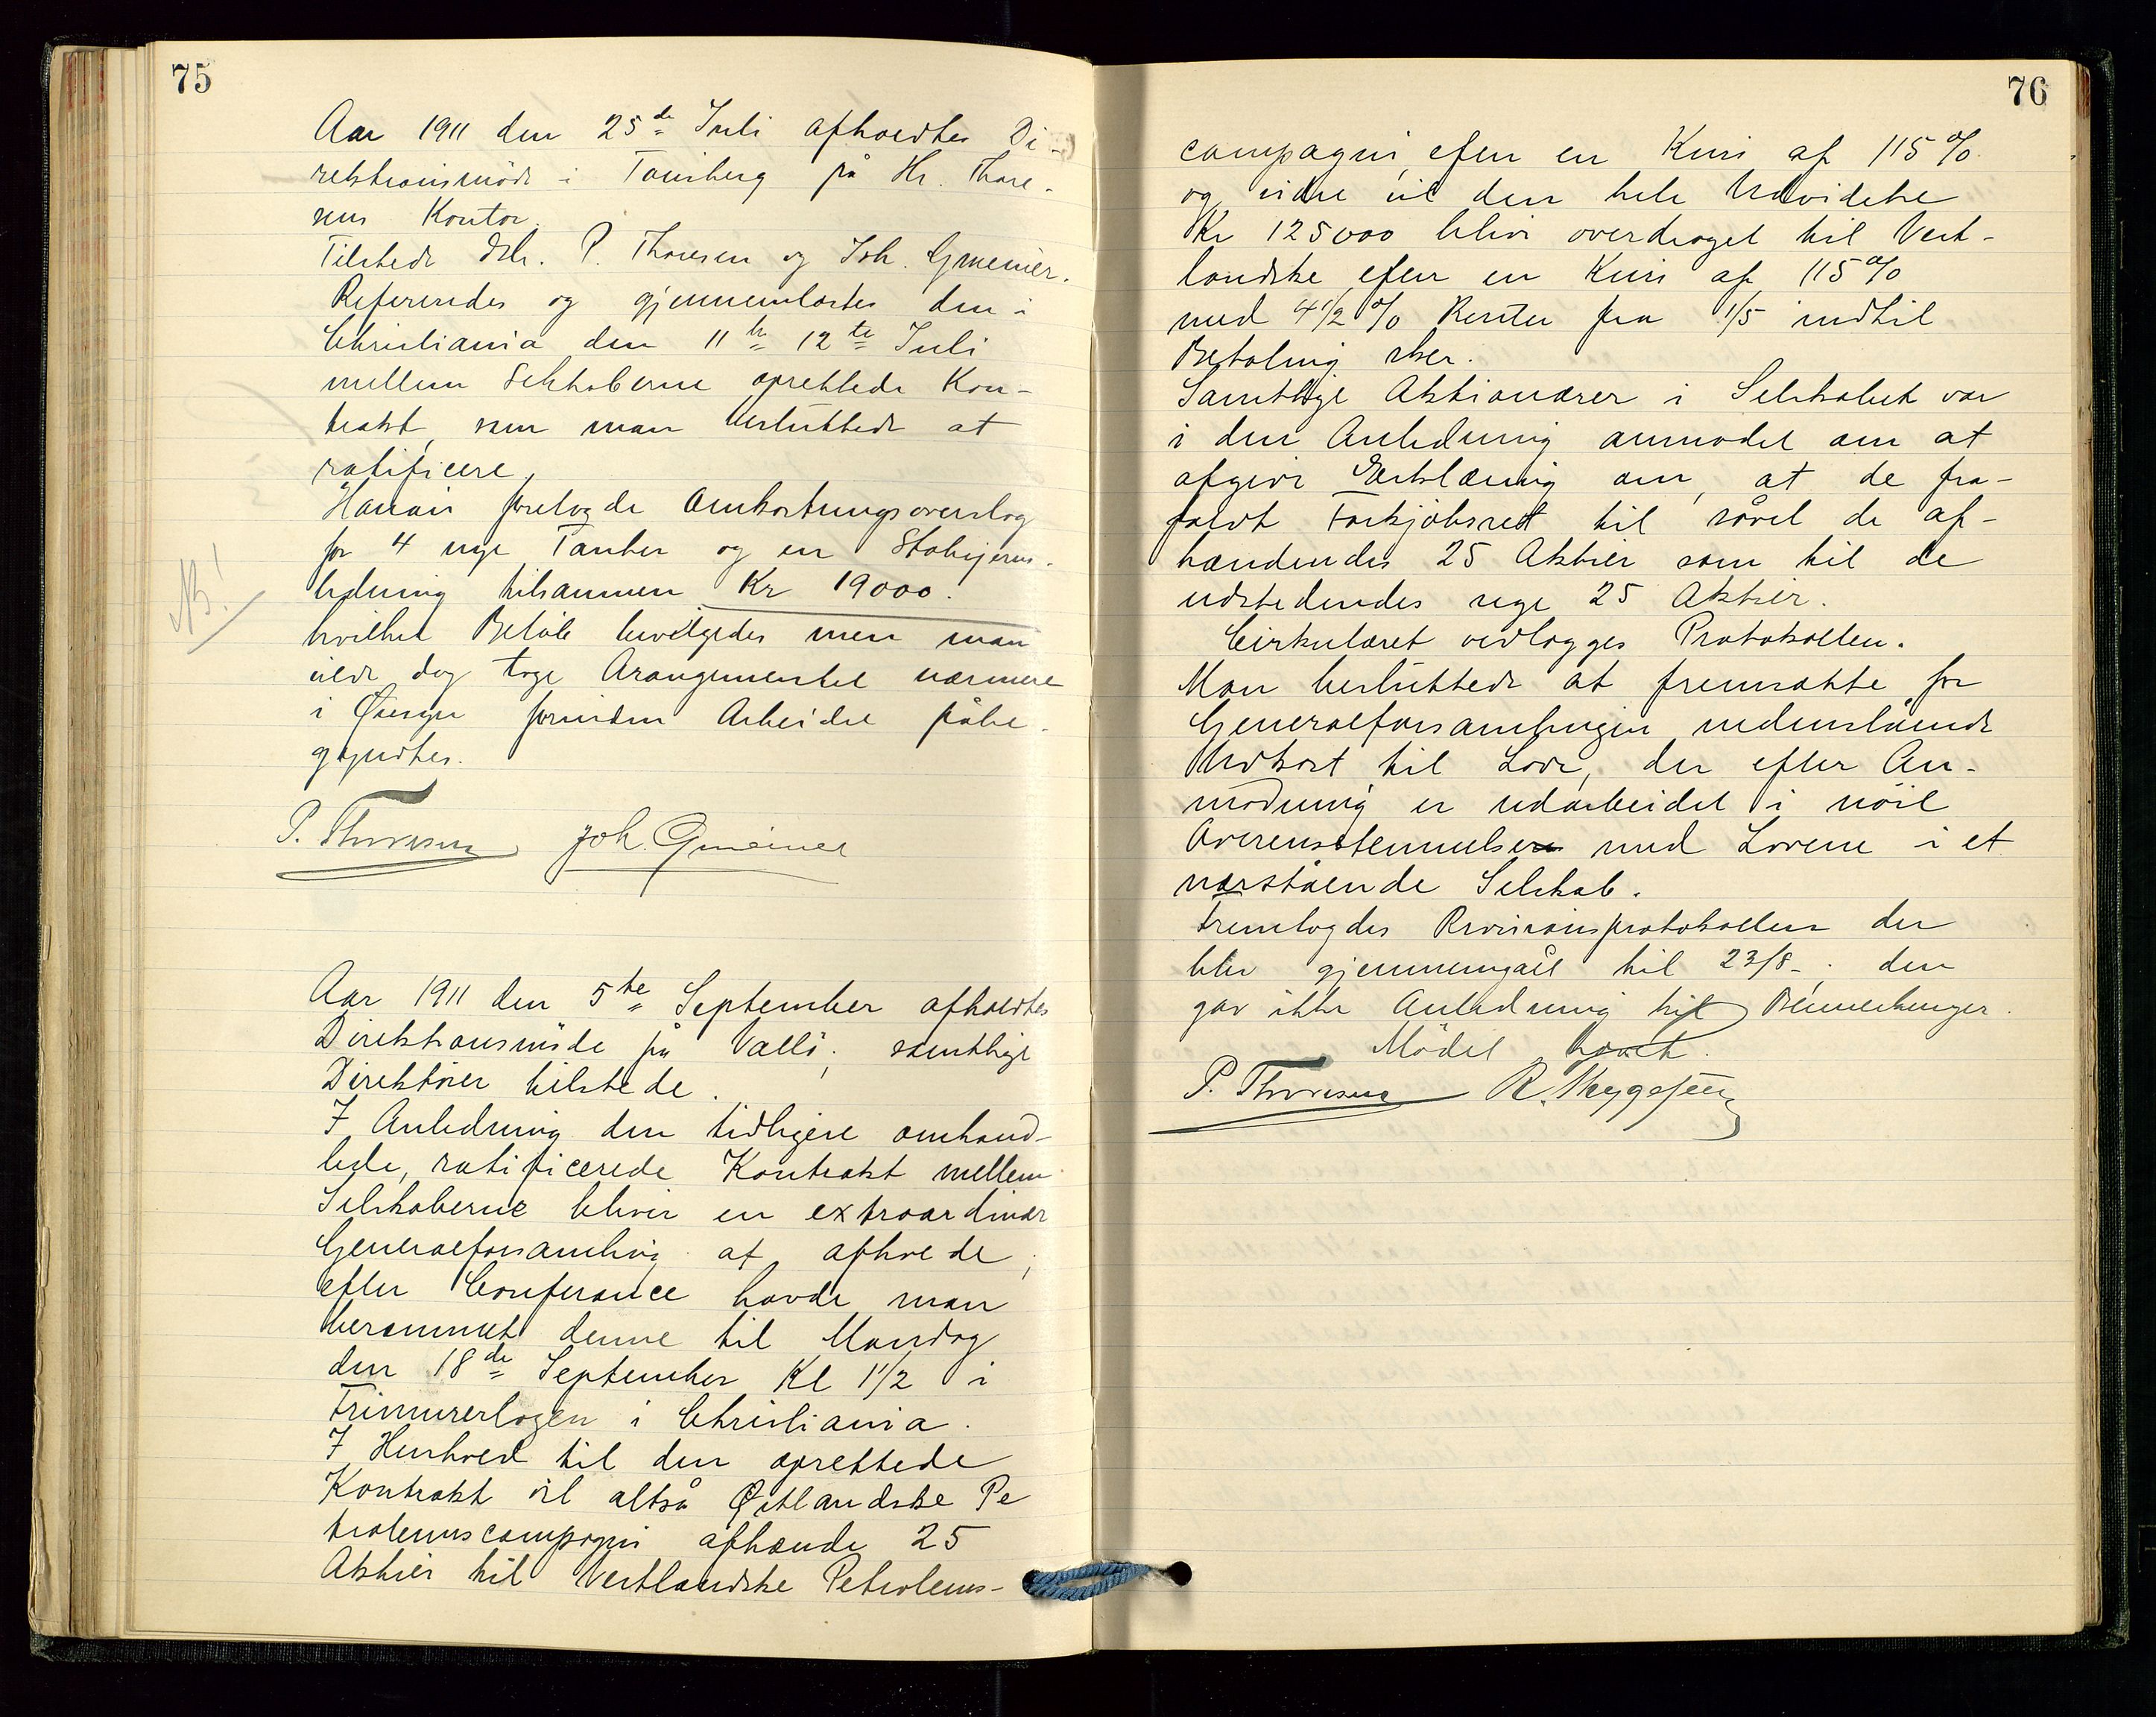 75
Aar 1911 den 25de Juli afholdtes Di-
rektionsmöde i Tönsberg på Hr. Thore-
sens Kontor.
Tilstede Dhr. P. Thoresen og Joh. Gmeiner.
Refereredes og gjennemlæstes den i
Christiania den 11te 12te Juli
mellem Selskaberne oprettede Kon-
trakt, som man besluttede at
ratificere,
forelagde Omkostningsoverslag
for 4 nye Tanker og en
ledning tilsammen Kr 19000.
NB!
hvilket Beløb bevilgedes men man
vilde dog tage Arangementet nærmere
i Øiesyn forinden Arbeidet påbe-
gyndtes.
P. Thoresen Joh. Gmeiner
Aar 1911 den 5te September afholdtes
Direktionsmöde på Vallö; samtlige
Direktörer tilstede.
I Anledning den tidligere omhand-
lede, ratificerede Kontrakt mellem
Selskaberne bliver en extraordinær
Generalforsamling at afholde;
efter Conferance havde man
berammet denne til Mandag
den 18de September Kl 1 1/2 i
Frimurerlogen i Christiania.
I Henhold til den oprettede
Kontrakt vil altså Østlandske Pe
troleumscompagni afhænde 25
Aktier til Vestlandske Petroleums-
76
compagni, efter en Kurs af 115%
og videre vil den hele Udvidelse
Kr 125000 blive overdraget til Vest-
landske efter en Kurs af 115%
med 4 1/2 % Renter fra 1/5 indtil
Betaling sker.
Samtlige Aktionærer i Selskabet var
i den Anledning anmodet om at
afgive Erklæring om, at de fra-
faldt Forkjöbsret til såvel de af-
hændendes 25 Aktier som til de
udstedendes nye 25 Aktier.
Cirkulæret vedlægges Protokollen.
Man besluttede at fremsætte for
Generalforsamlingen nedenstående
Udkast til Love, der efter An-
modning er udarbeidet i nöie
Overensstemmelse med Lovene i et
nærstående Selskab.
Fremlagdes Revisionsprotokollen der
blev gjennemgået til 23/8-. den
gav ikke Anledning til Bemerkninger.
Mödet hævet.
P. Thoresen R. Thygesen